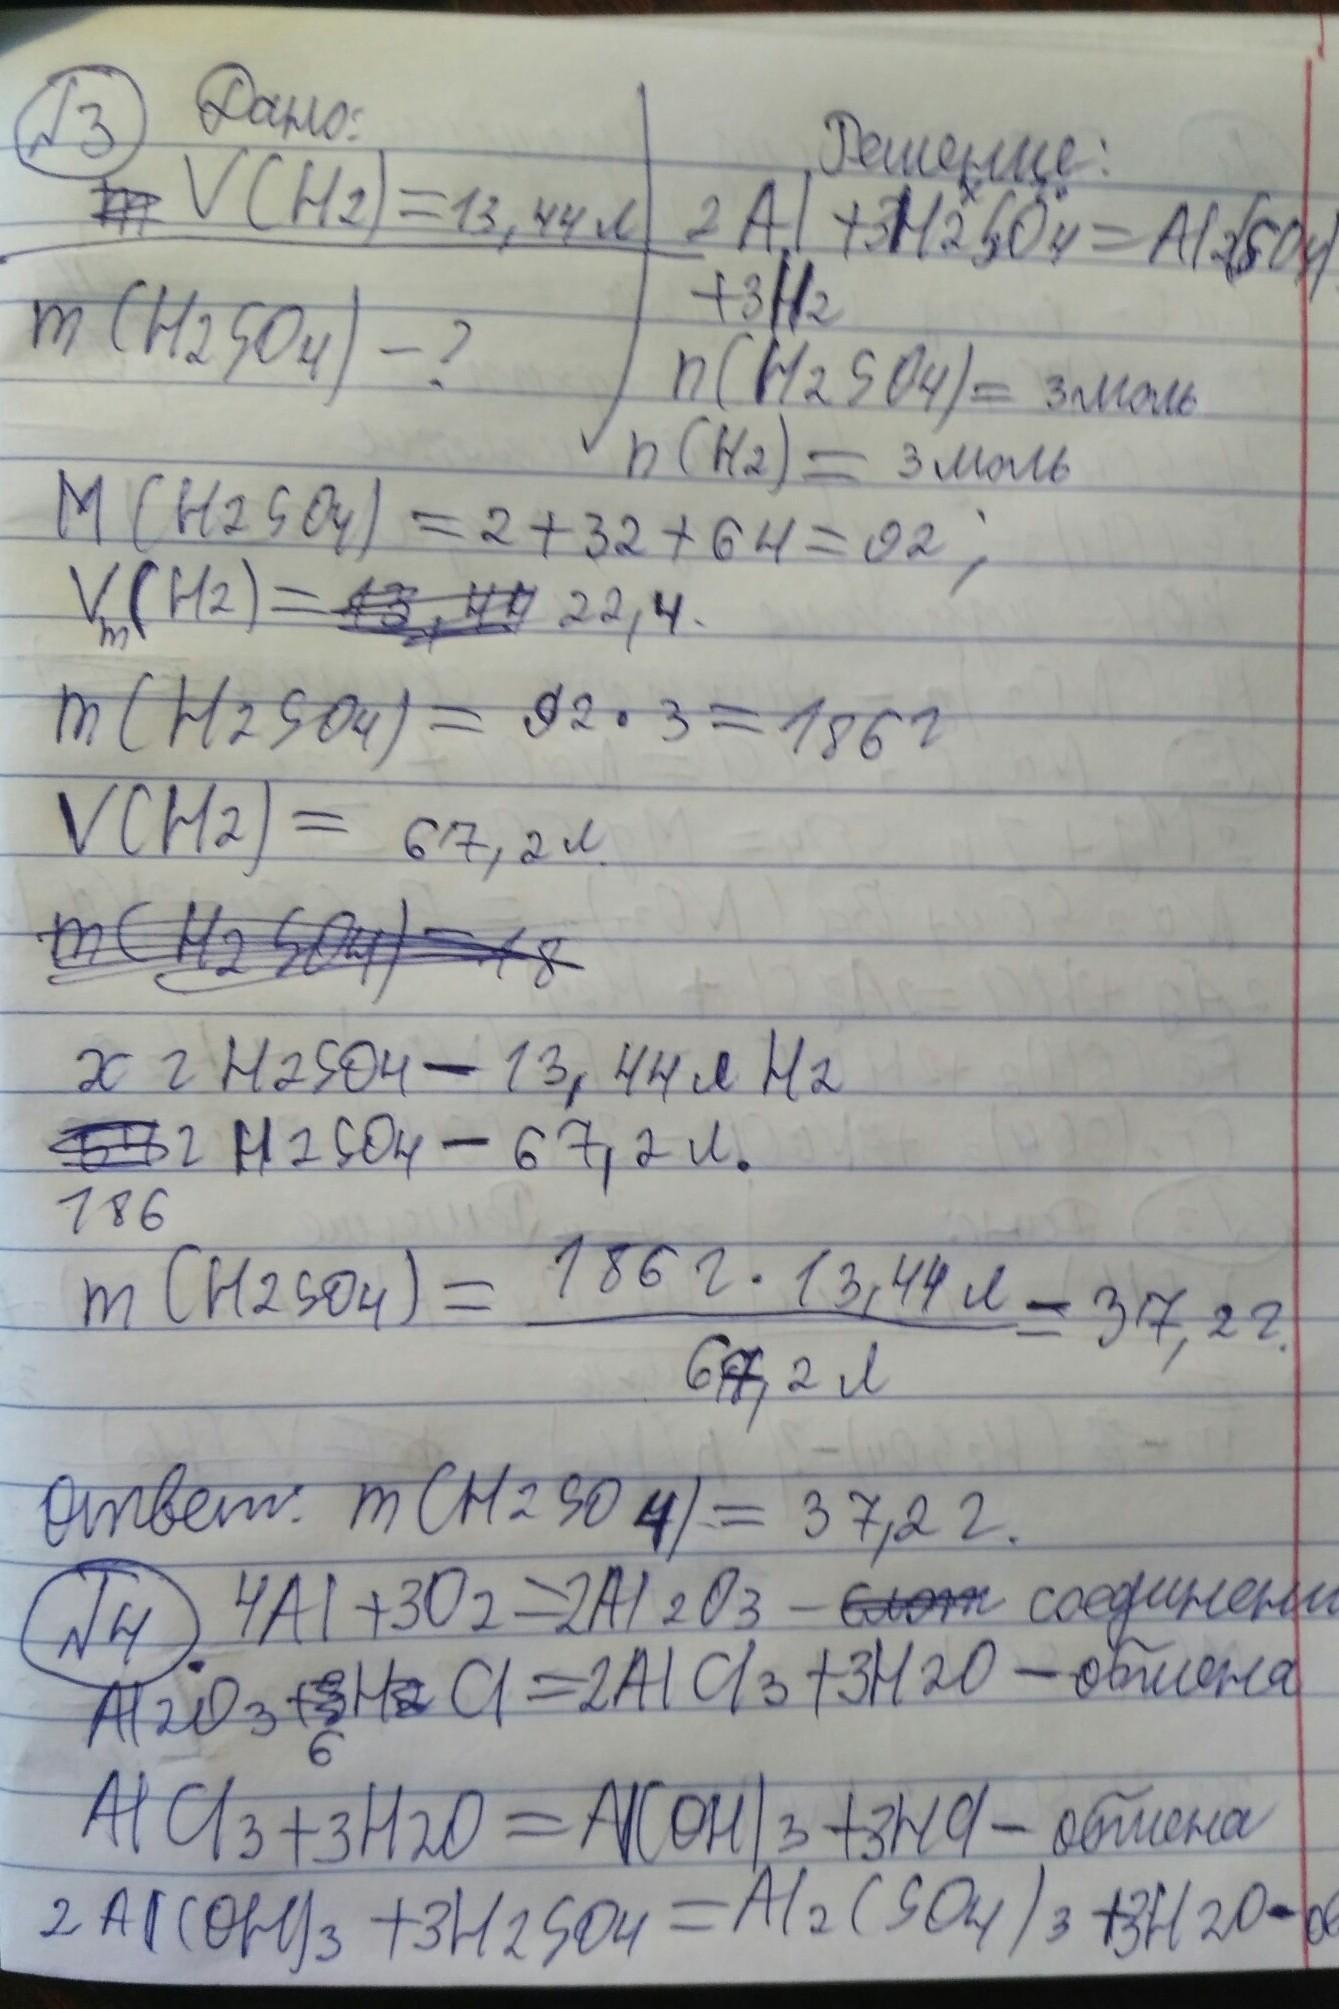 №3 Дано:
V(H2)=13,44л
m(H2SO4)-?
Решение:
2Al+3H2SO4=Al2(SO4)
+3H2
n(H2SO4)=3моль
n(H2)=3моль
M(H2SO4)=2+32+64=92;
Vm(H2)=13,44 22,4.
m(H2SO4)=92·3=186г
V(H2)=67,2л.
m(H2SO4)=18
x г H2SO4-13,44л H2
г H2SO4-67,2л.
186
m(H2SO4)=186г·13,44л=37,2г.
67,2л
Ответ: m(H2SO4)=37,2г.
№4 4Al+3O2=2Al2O3- соединени
Al2O3+3HCl=2AlCl3+3H2O-обмена
6
AlCl3+3H2O=Al(OH)3+3HCl-обмена
2Al(OH)3+3H2SO4=Al2(SO4)3+3H2O-об